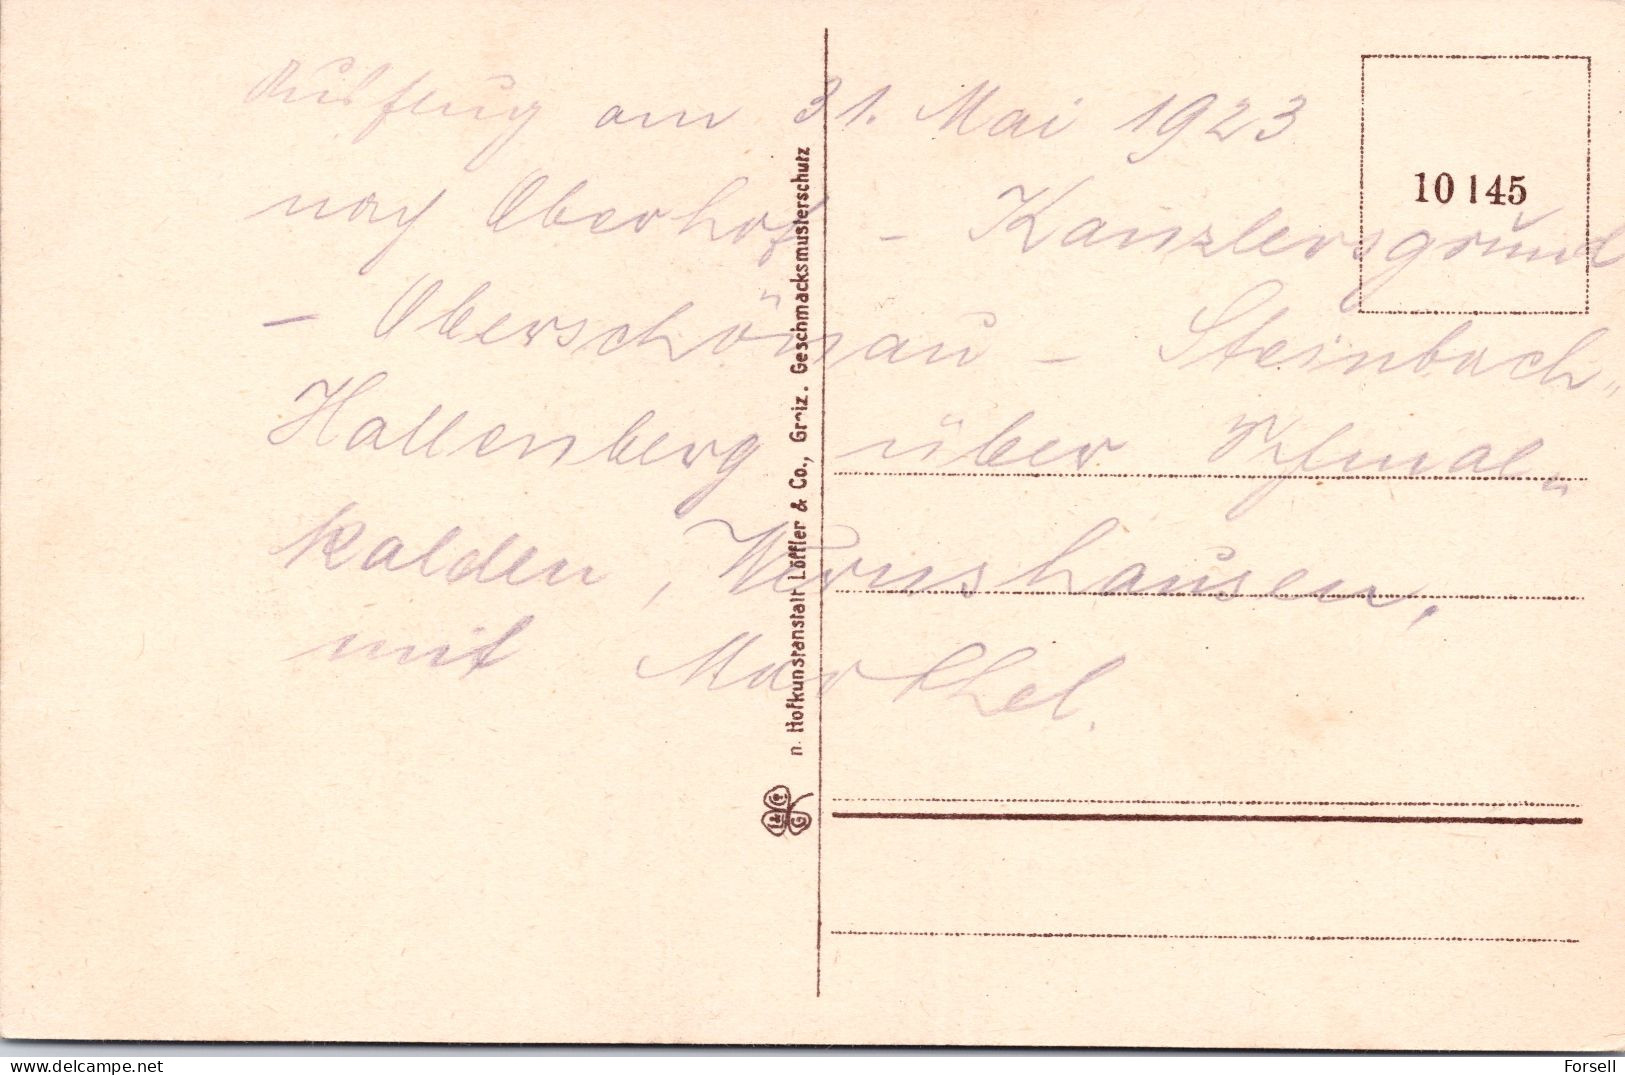 Ausflug am 31. Mai 1923
nach Oberhof - Kanzlersgrund
- Oberschönau - Steinbach„
Hallenberg über Schmal„
kalden, Wernshausen,
mit Marthel.
10 145
n. Hofkunstanstalt Löffler & Co., Greiz. Geschmacksmusterschutz
Forsell